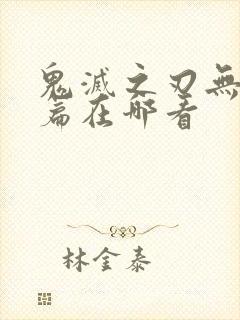 鬼滅之刃無
篇在哪看
林金泰